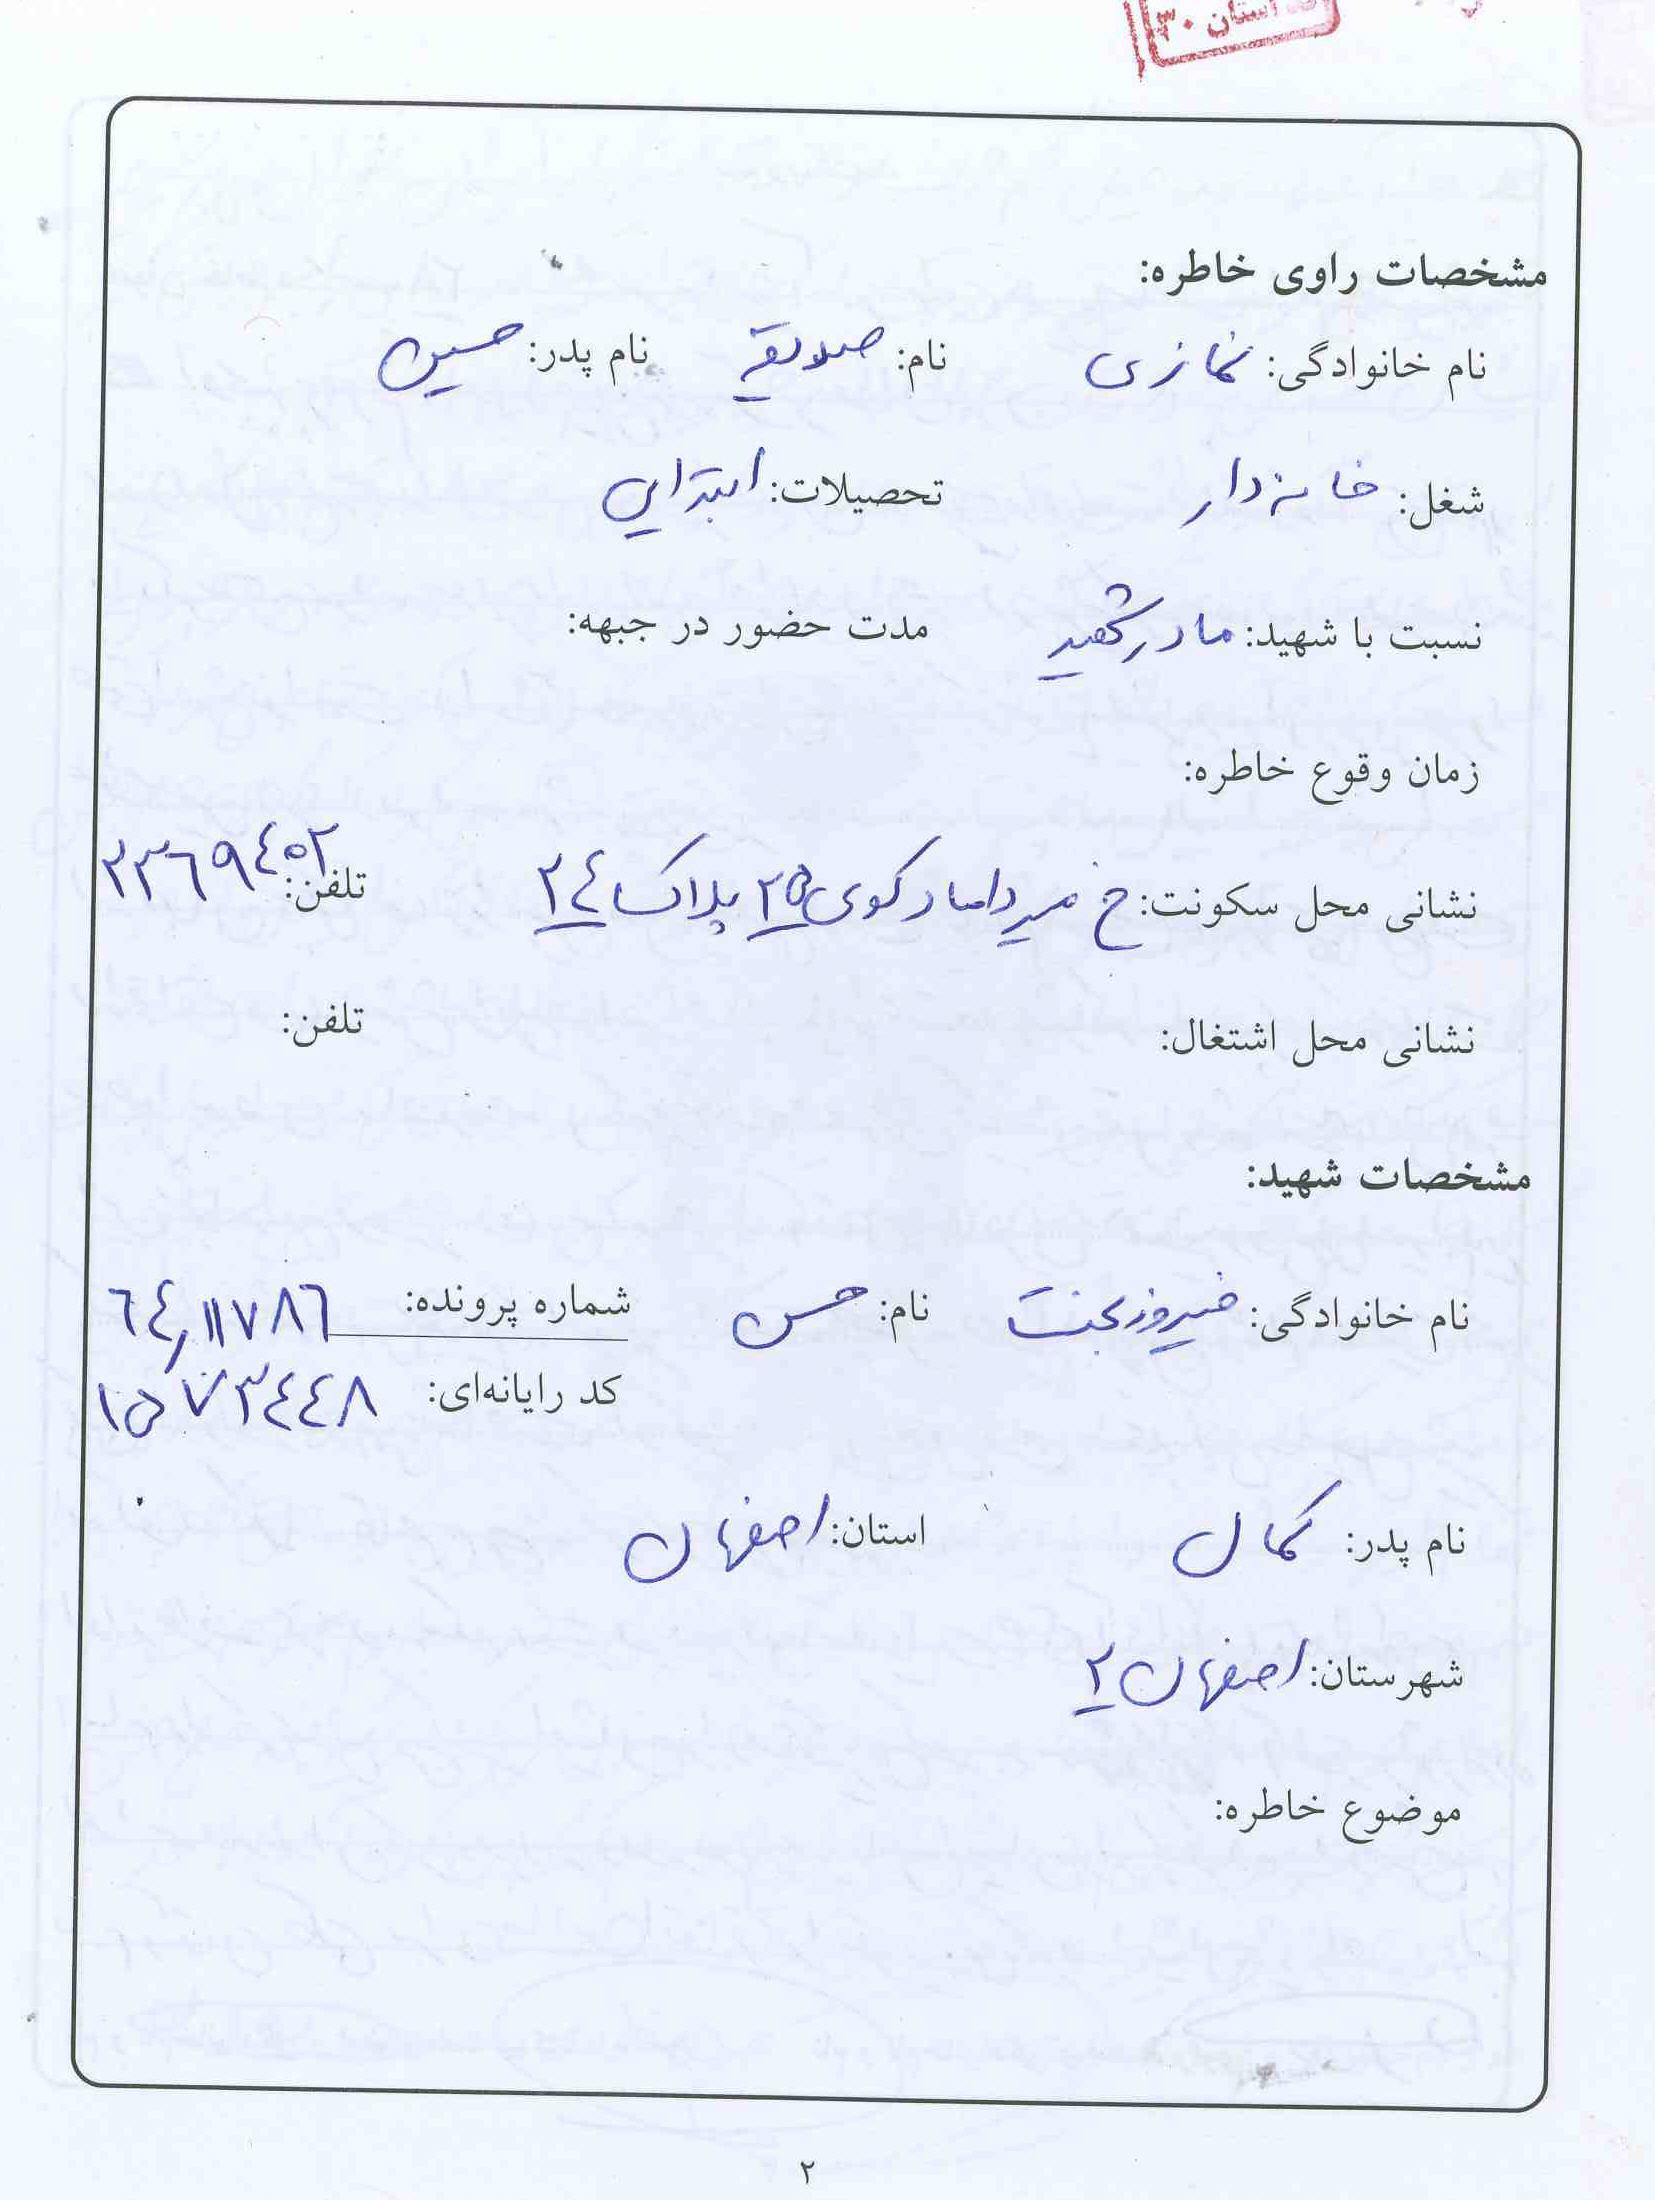 استان ۳۰
مشخصات راوی خاطره:
نام خانوادگی: نمازی نام: صدیقه نام پدر: حسین
شغل: خانه دار تحصیلات: ابتدایی
نسبت با شهید: مادر شهید مدت حضور در جبهه:
زمان وقوع خاطره:
نشانی محل سکونت: خ میرداماد کوی ۲۵ پلاک ۲۴ تلفن: ۲۳۶۹۴۵۲
نشانی محل اشتغال: تلفن:
مشخصات شهید:
نام خانوادگی: فیروزبخت نام: حسن شماره پرونده: ۶۴٫۱۱۷۸۶
کد رایانه‌ای: ۱۵۷۳۴۴۸
نام پدر: کمال استان: اصفهان
شهرستان: اصفهان ۲
موضوع خاطره:
۲